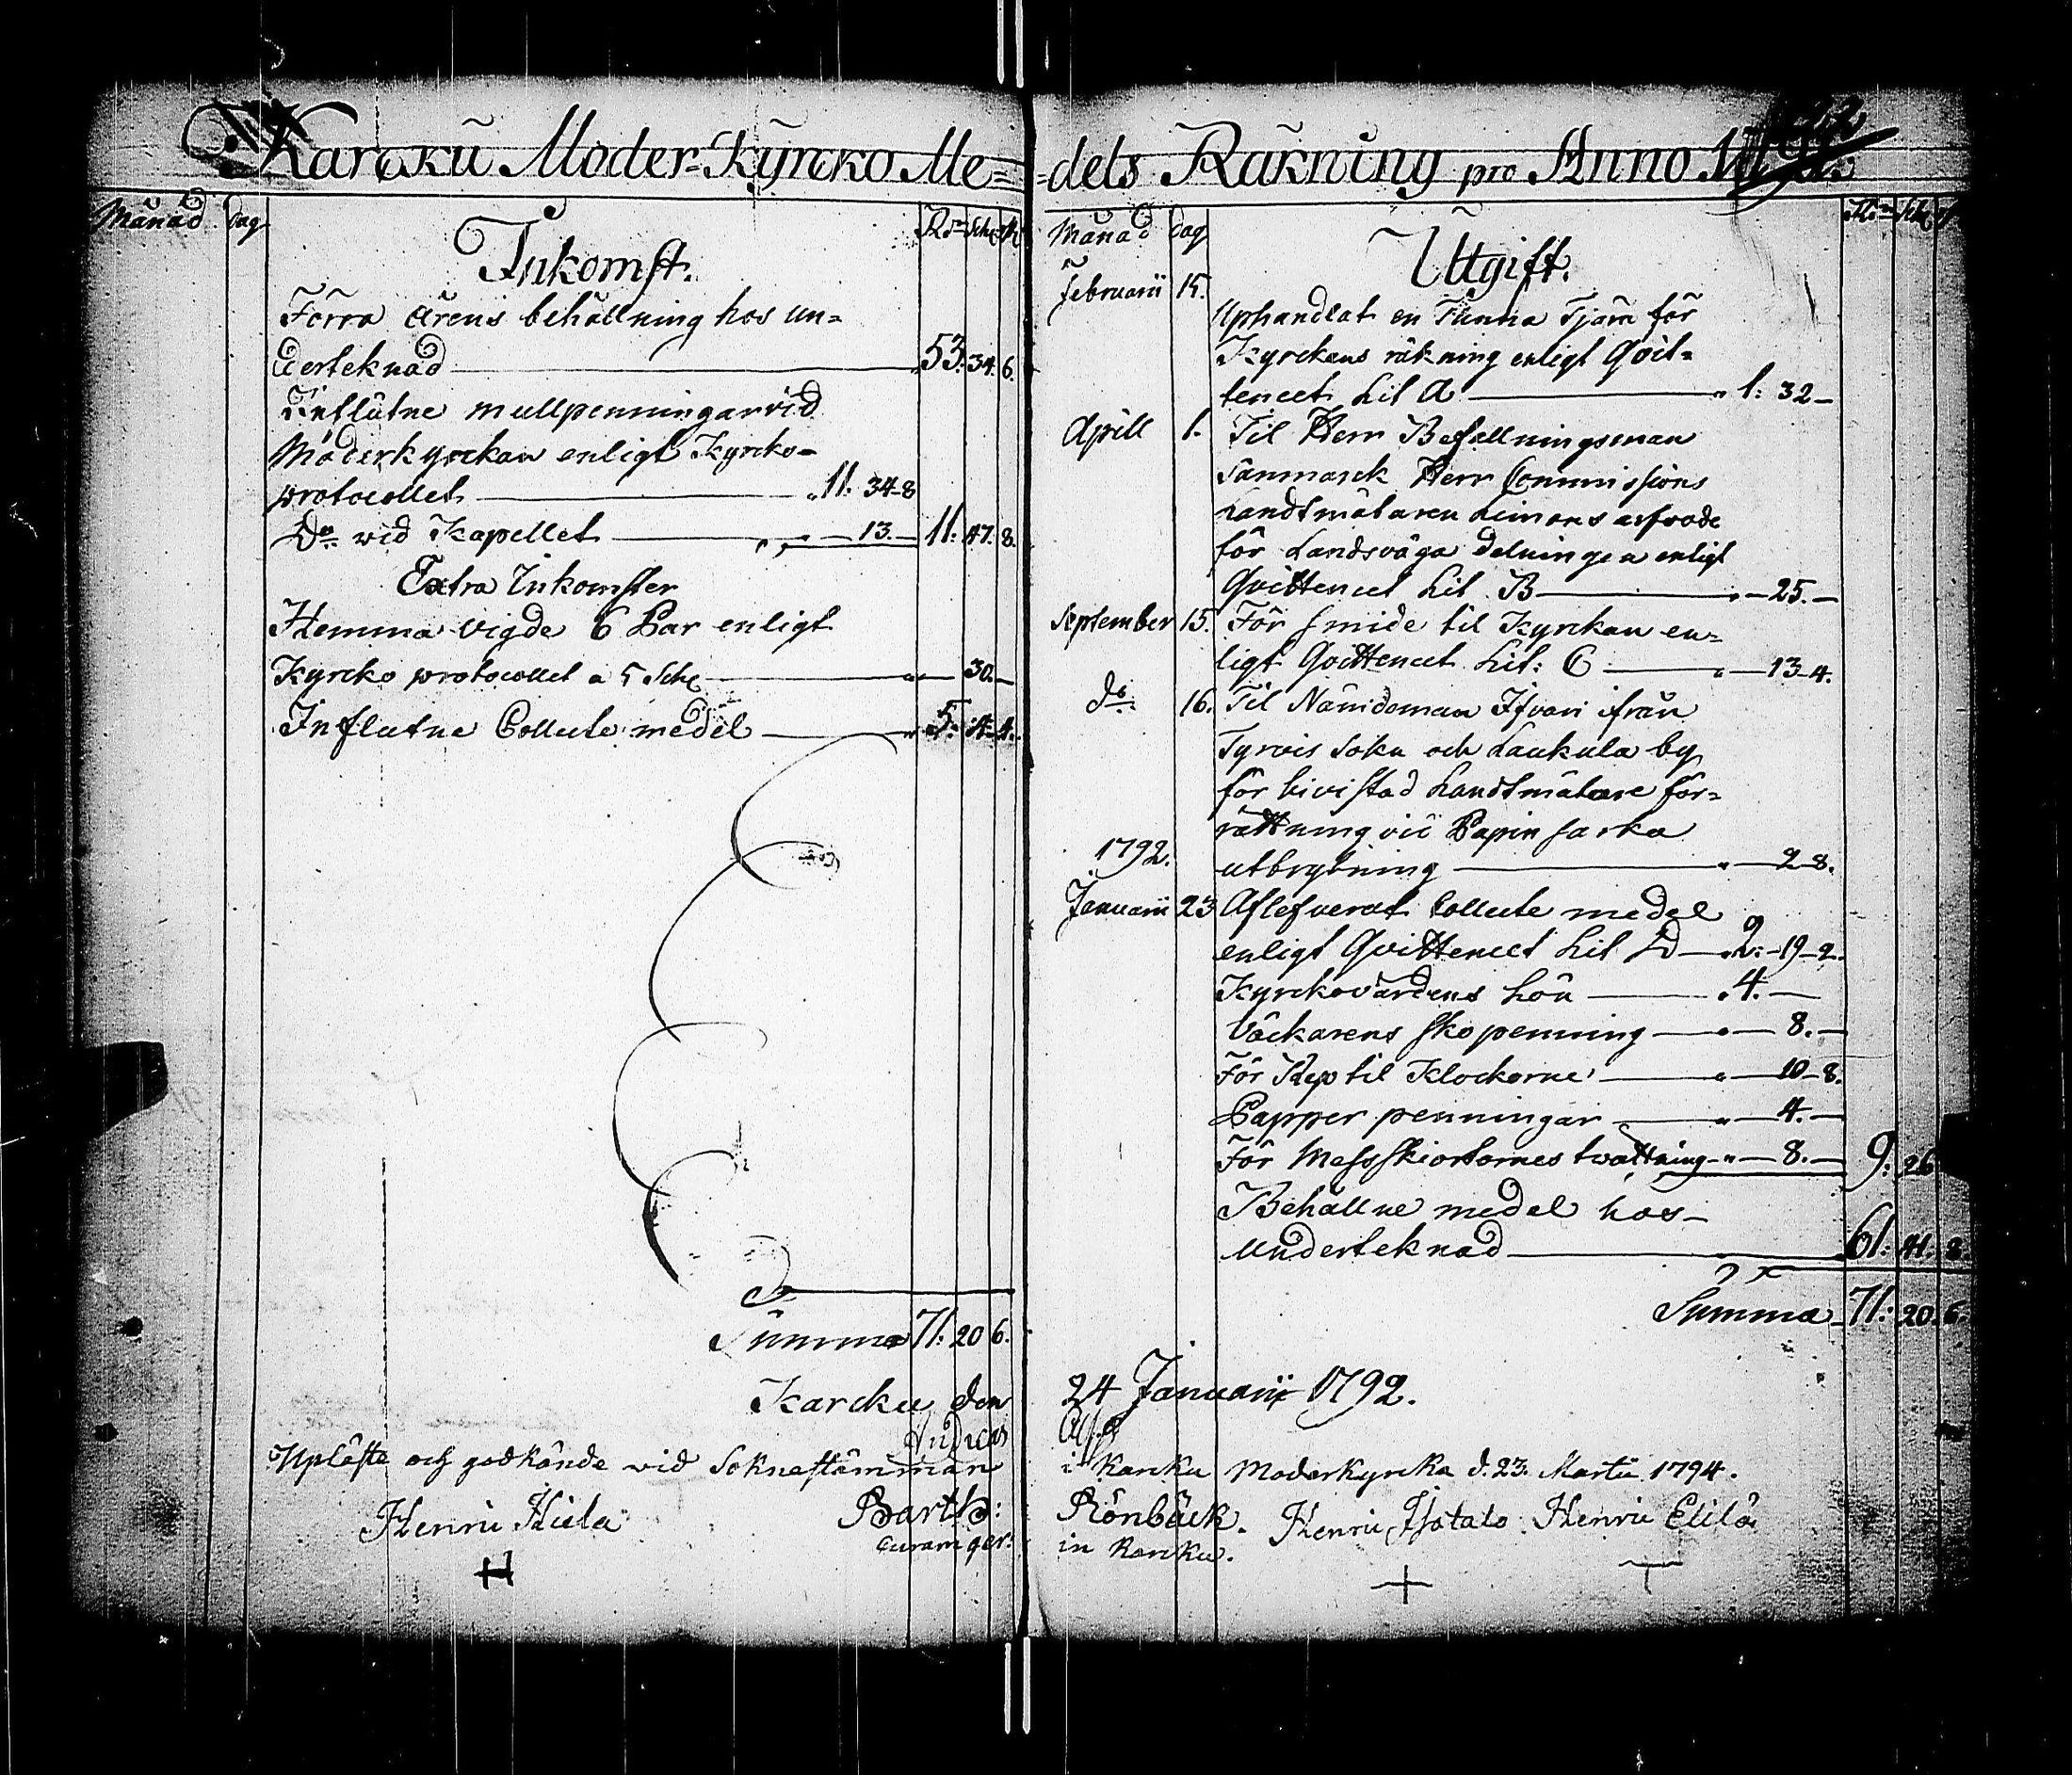 Karcku Moder-Kyrcko Me=
Månad dag R:dr Sch r
Inkomst.
Förra årens behållning hos un=
derteknad 53. 34. 6.
Influtne mullpenningar vid
Moderkyrckan enligt Kyrcko-
protocollet 11. 34-8
Do vid Kapellet 13. 11. 47. 8.
Extra Inkomster
Hemma vigde 6 Par enligt
Kyrcko protocollet a 5 Sch 30.
Influtne Collecte medel 5. 4. 4.
Summa 71: 20 6.
Karcku den
Uplåste och godkände vid Soknestämman
Henric Hiela Barth:
H curam ger:
=dels Räkning pro Anno
Månad dag
Utgift.
Februarii 15.
Uphandlat en Tunna Tjära för
Kyrckans räkning enligt Qvit=
tencet Lit A 1: 32-
Aprill 1. Til Herr Befallningsman
Sanmarck Herr Commissions
Landtmätaren Limons arfvode
för Landsväga delningen enligt
Qvittencet Lit B 25.
September 15. För smide til Kyrckan en=
ligt Qvittencet Lit: C 13-4.
do 16. Til Nämdeman Ifvari ifrån
Tyrvis Sokn och Laukula by
för bivistad Landtmätare för=
rättning vid Papin sarka
1792. utbrytning 2 8.
Januarii 23 Aflefverat Collecte medel
enligt Qvittencet Lit D 2: 19-2.
Kyrckovärdens Lön 4.
Väckarens skopenning 8.
För Rep til Klockorne 10-8.
Papper penningar 4.
För Messskiortornes tvättning 8. 9: 26
Behållne medel hos-
underteknad 61: 41. 8.
Summa 71: 20. 6.
24 Januarii 1792.
i Karcku Moderkyrcka d. 23. Martii 1794.
Rönbäck. Henric Isotalo Henric Elilä
in Karcku.